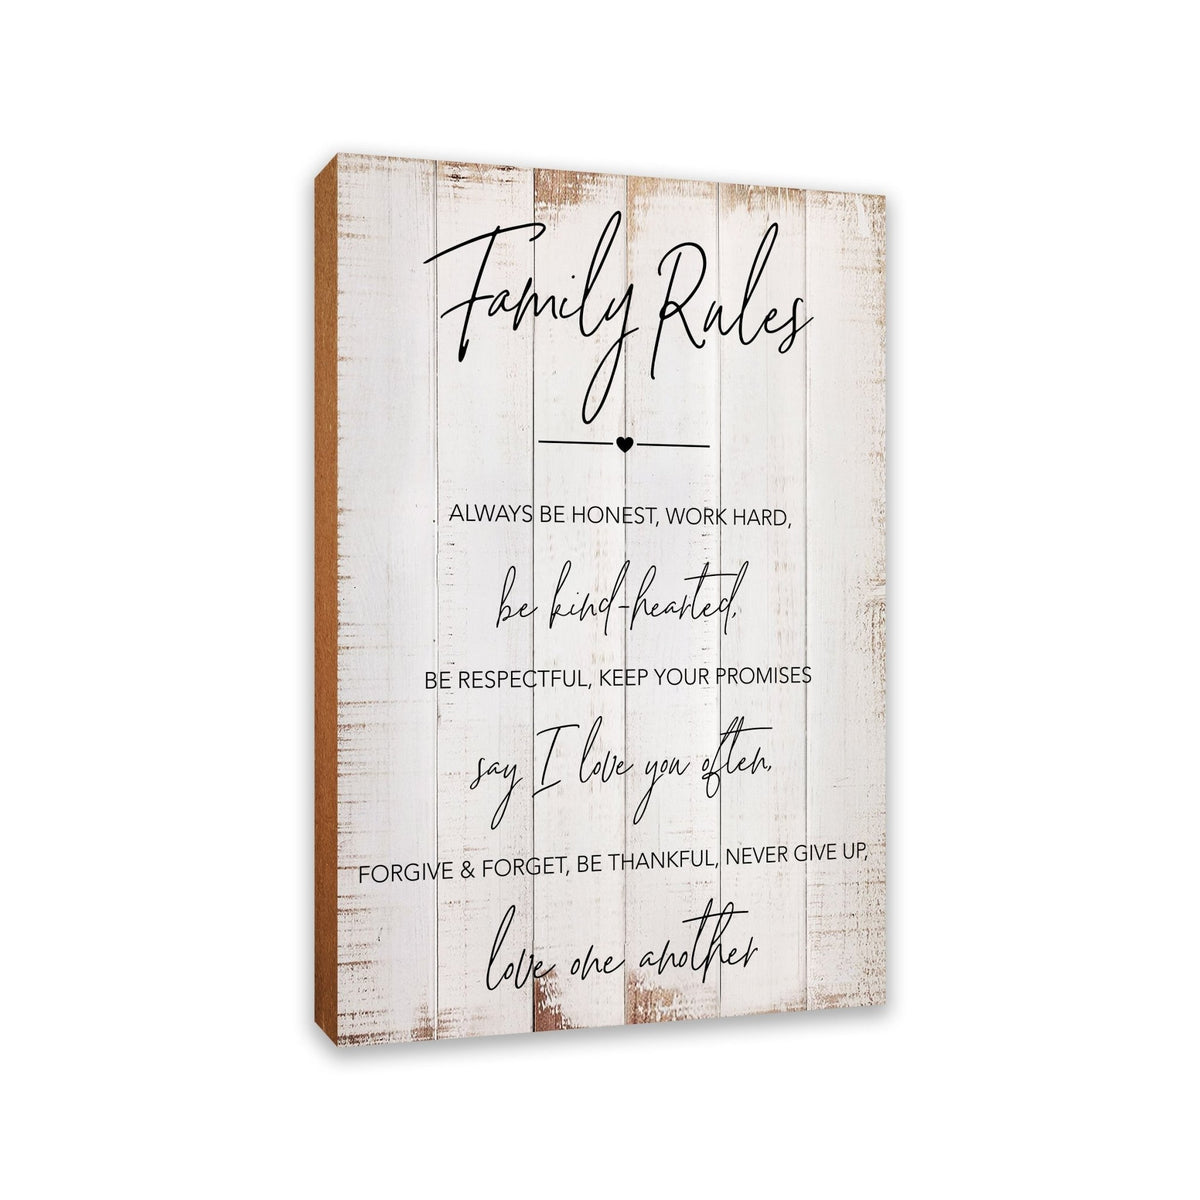 Family Rules
ALWAYS BE HONEST, WORK HARD,
be kind-hearted,
BE RESPECTFUL, KEEP YOUR PROMISES
say I love you often,
FORGIVE & FORGET, BE THANKFUL, NEVER GIVE UP,
love one another